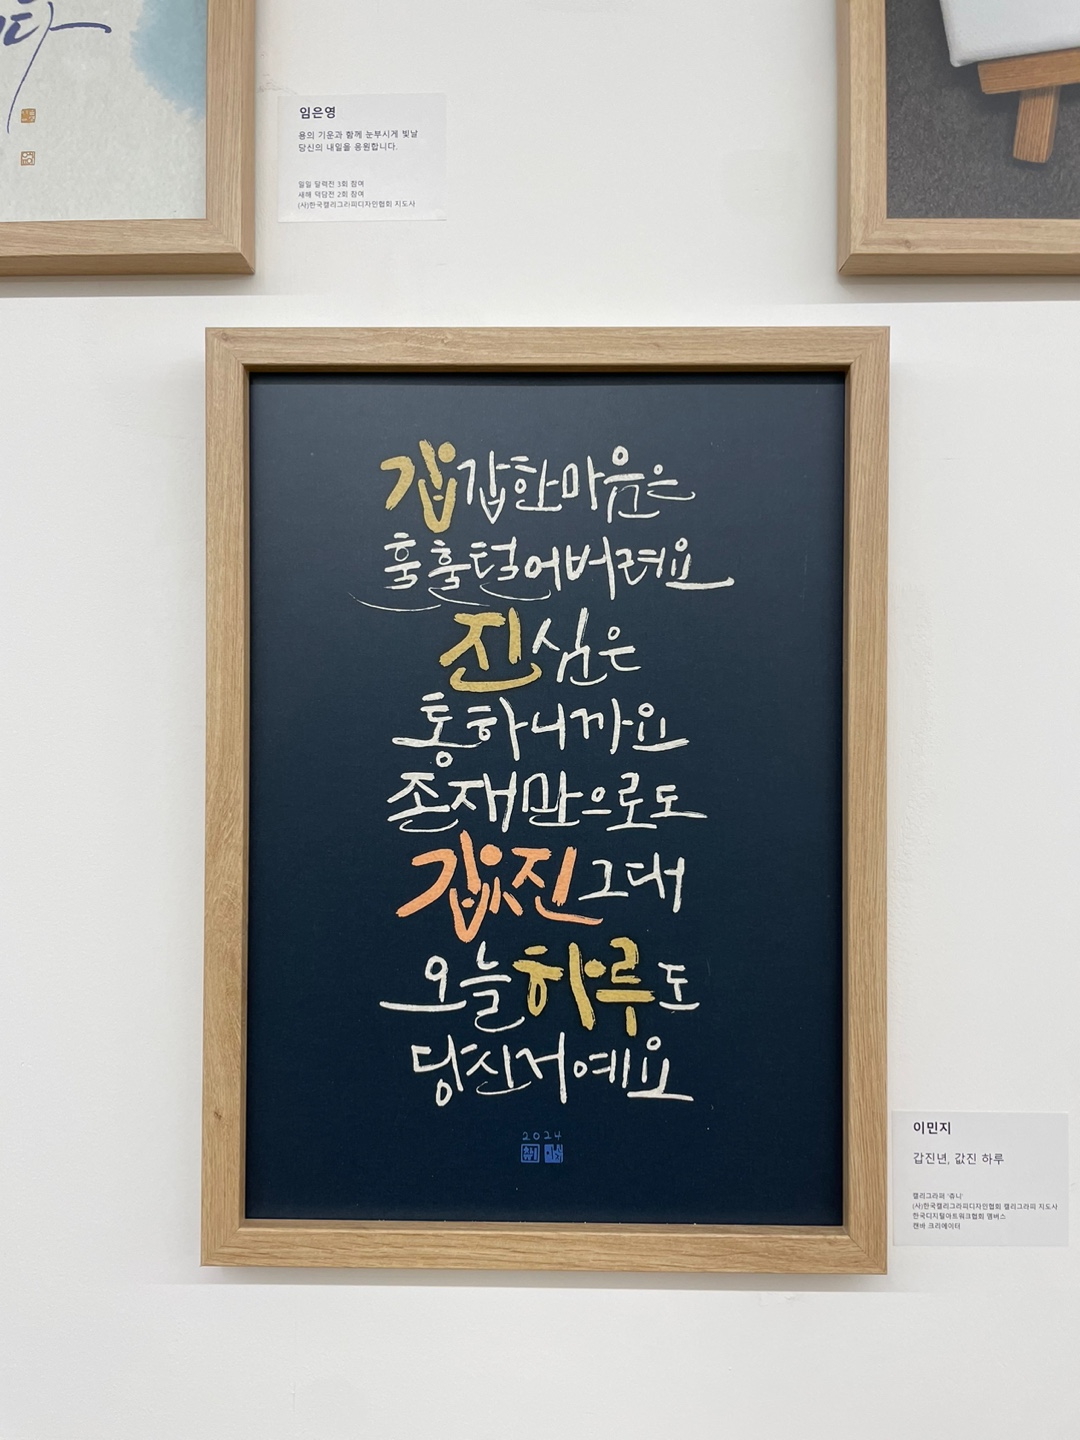 다
임은영
용의 기운과 함께 눈부시게 빛날
당신의 내일을 응원합니다.
일일 달력전 3회 참여
새해 덕담전 2회 참여
(사)한국캘리그라피디자인협회 지도사
갑갑한마음은
훌훌털어버려요
진심은
통하니까요
존재만으로도
값진그대
오늘하루도
당신거예요
2024
이민지
갑진년, 값진 하루
캘리그라퍼 '쥬니'
(사)한국캘리그라피디자인협회 캘리그라피 지도사
한국디지털아트워크협회 멤버스
캔바 크리에이터